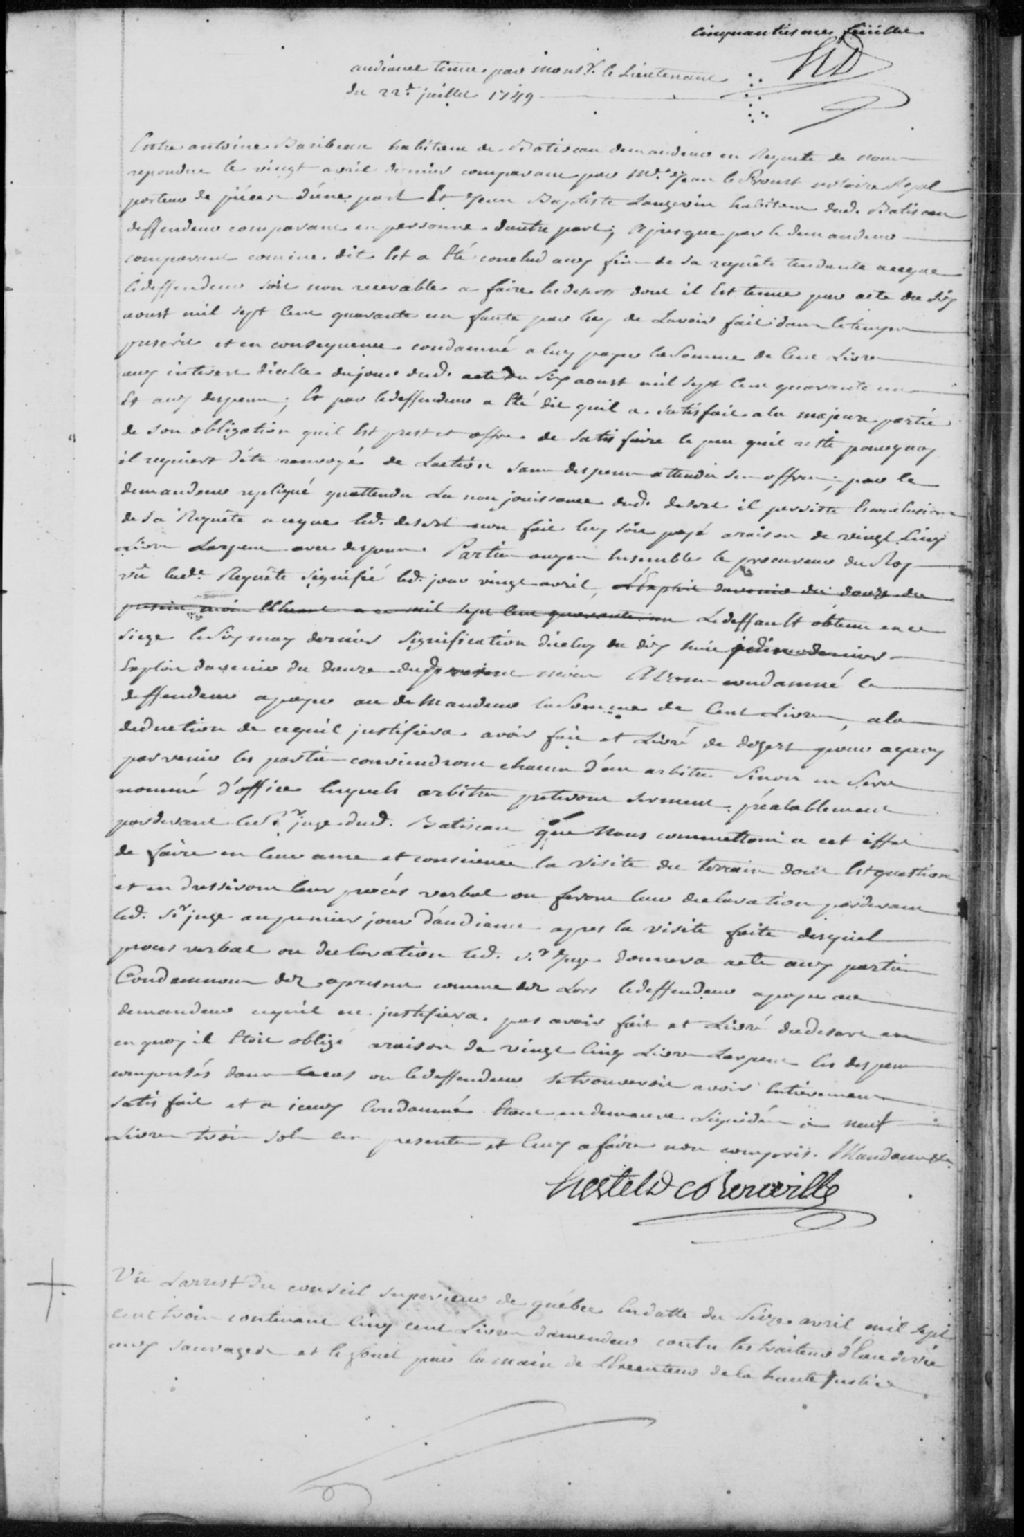 cinquantiesme feüillet
HD
audiance tenue par Monsr. le Lieutenant
du 22e. juillet 1749
Entre antoine Baribeau habitant de Batiscan demandeur en Requete de nous
repondue le vingt avril dernier comparant par Me. Jean le Proust notoire Royal
porteur de pieces d'une part Et Jean Baptiste Langevin habitant dud. Batiscan
deffendeur comparant en personne d'autre part; apres que par le demandeur
comparant comme dit Est a Eté conclud aux fins de sa requête tendante a ce que
le deffendeur soit non recevable a faire le desert dont il Est tenue par acte du six
aoust mil sept Cent quarante un faute par luy de Lavoir fait dans le temps
prescrit et en consequence condamné a luy payer la Somme de Cent Livres
aux interest d'icelle du jour dud. acte du Six aoust mil sept Cent quarante un
Et aux despens; Et par le deffendeur a Eté dit quil a satisfait a la majeure partie
de son obligation quil Est prest et offre de satisfaire le peu quil reste pourquoy
il requiert d'être renvoyé de Laction sans despens attendu ses offres; par le
demandeur repliqué quattendu La non jouissance dud. desert il persiste
de sa Requête a ce que led. desert non fait luy soit payé a raison de vingt Cinq
Livres Larpent avec despens Parties ouyes Ensemble le procureur du Roy
vû lad. Requête signifié led. jour vingt avril, Le deffault obtenu en ce
siege le Six may dernier signification diceluy du dix huit
Exploit davenir du douze du present mois Avons condamné le
deffendeur a payer au demandeur la Somme de Cent Livres, a la
deduction de ce quil justifiera avoir fait et Livré de desert pour a quoy
parvenir les parties conviendront chacun d'un arbitre sinon en sera
nommé d'office lesquels arbitres presteront serment préalablement
pardevant le Sr. juge dud. Batiscan que Nous commettons a cet effet
de faire en leur ame et conscience la visite du terrain dont Est question
et en dresseront leur procés verbal ou feront leur declaration pardevant
led. Sr. juge au premier jour d'audiance apres la visite faite duquel
procés verbal ou declaration led. Sr. Juge donnera acte aux parties
Condamnons dez apresent comme dez Lors le deffendeur a payer au
demandeur ce quil ne justifiera pas avoir fait et Livré de desert
en quoy il Etoit obligé a raison de vingt Cinq Livres Larpent les despens
compensés dans le cas ou le deffendeur se trouveroit avoir Entierement
satisfait et a iceux Condamné Etant en demeure Liquidés a neuf
Livres trois sols ces presentes et Ceux a faire non compris. Mandons &a.
hertel de Rouville
Vû Larrest du conseil superieur de québec en datte du Seize avril mil sept
cent trois contenant Cinq cent Livres damendes contre les traiteurs d'Eau de vie
aux sauvages et le fouet par la main de LExecuteur de la haute Justice